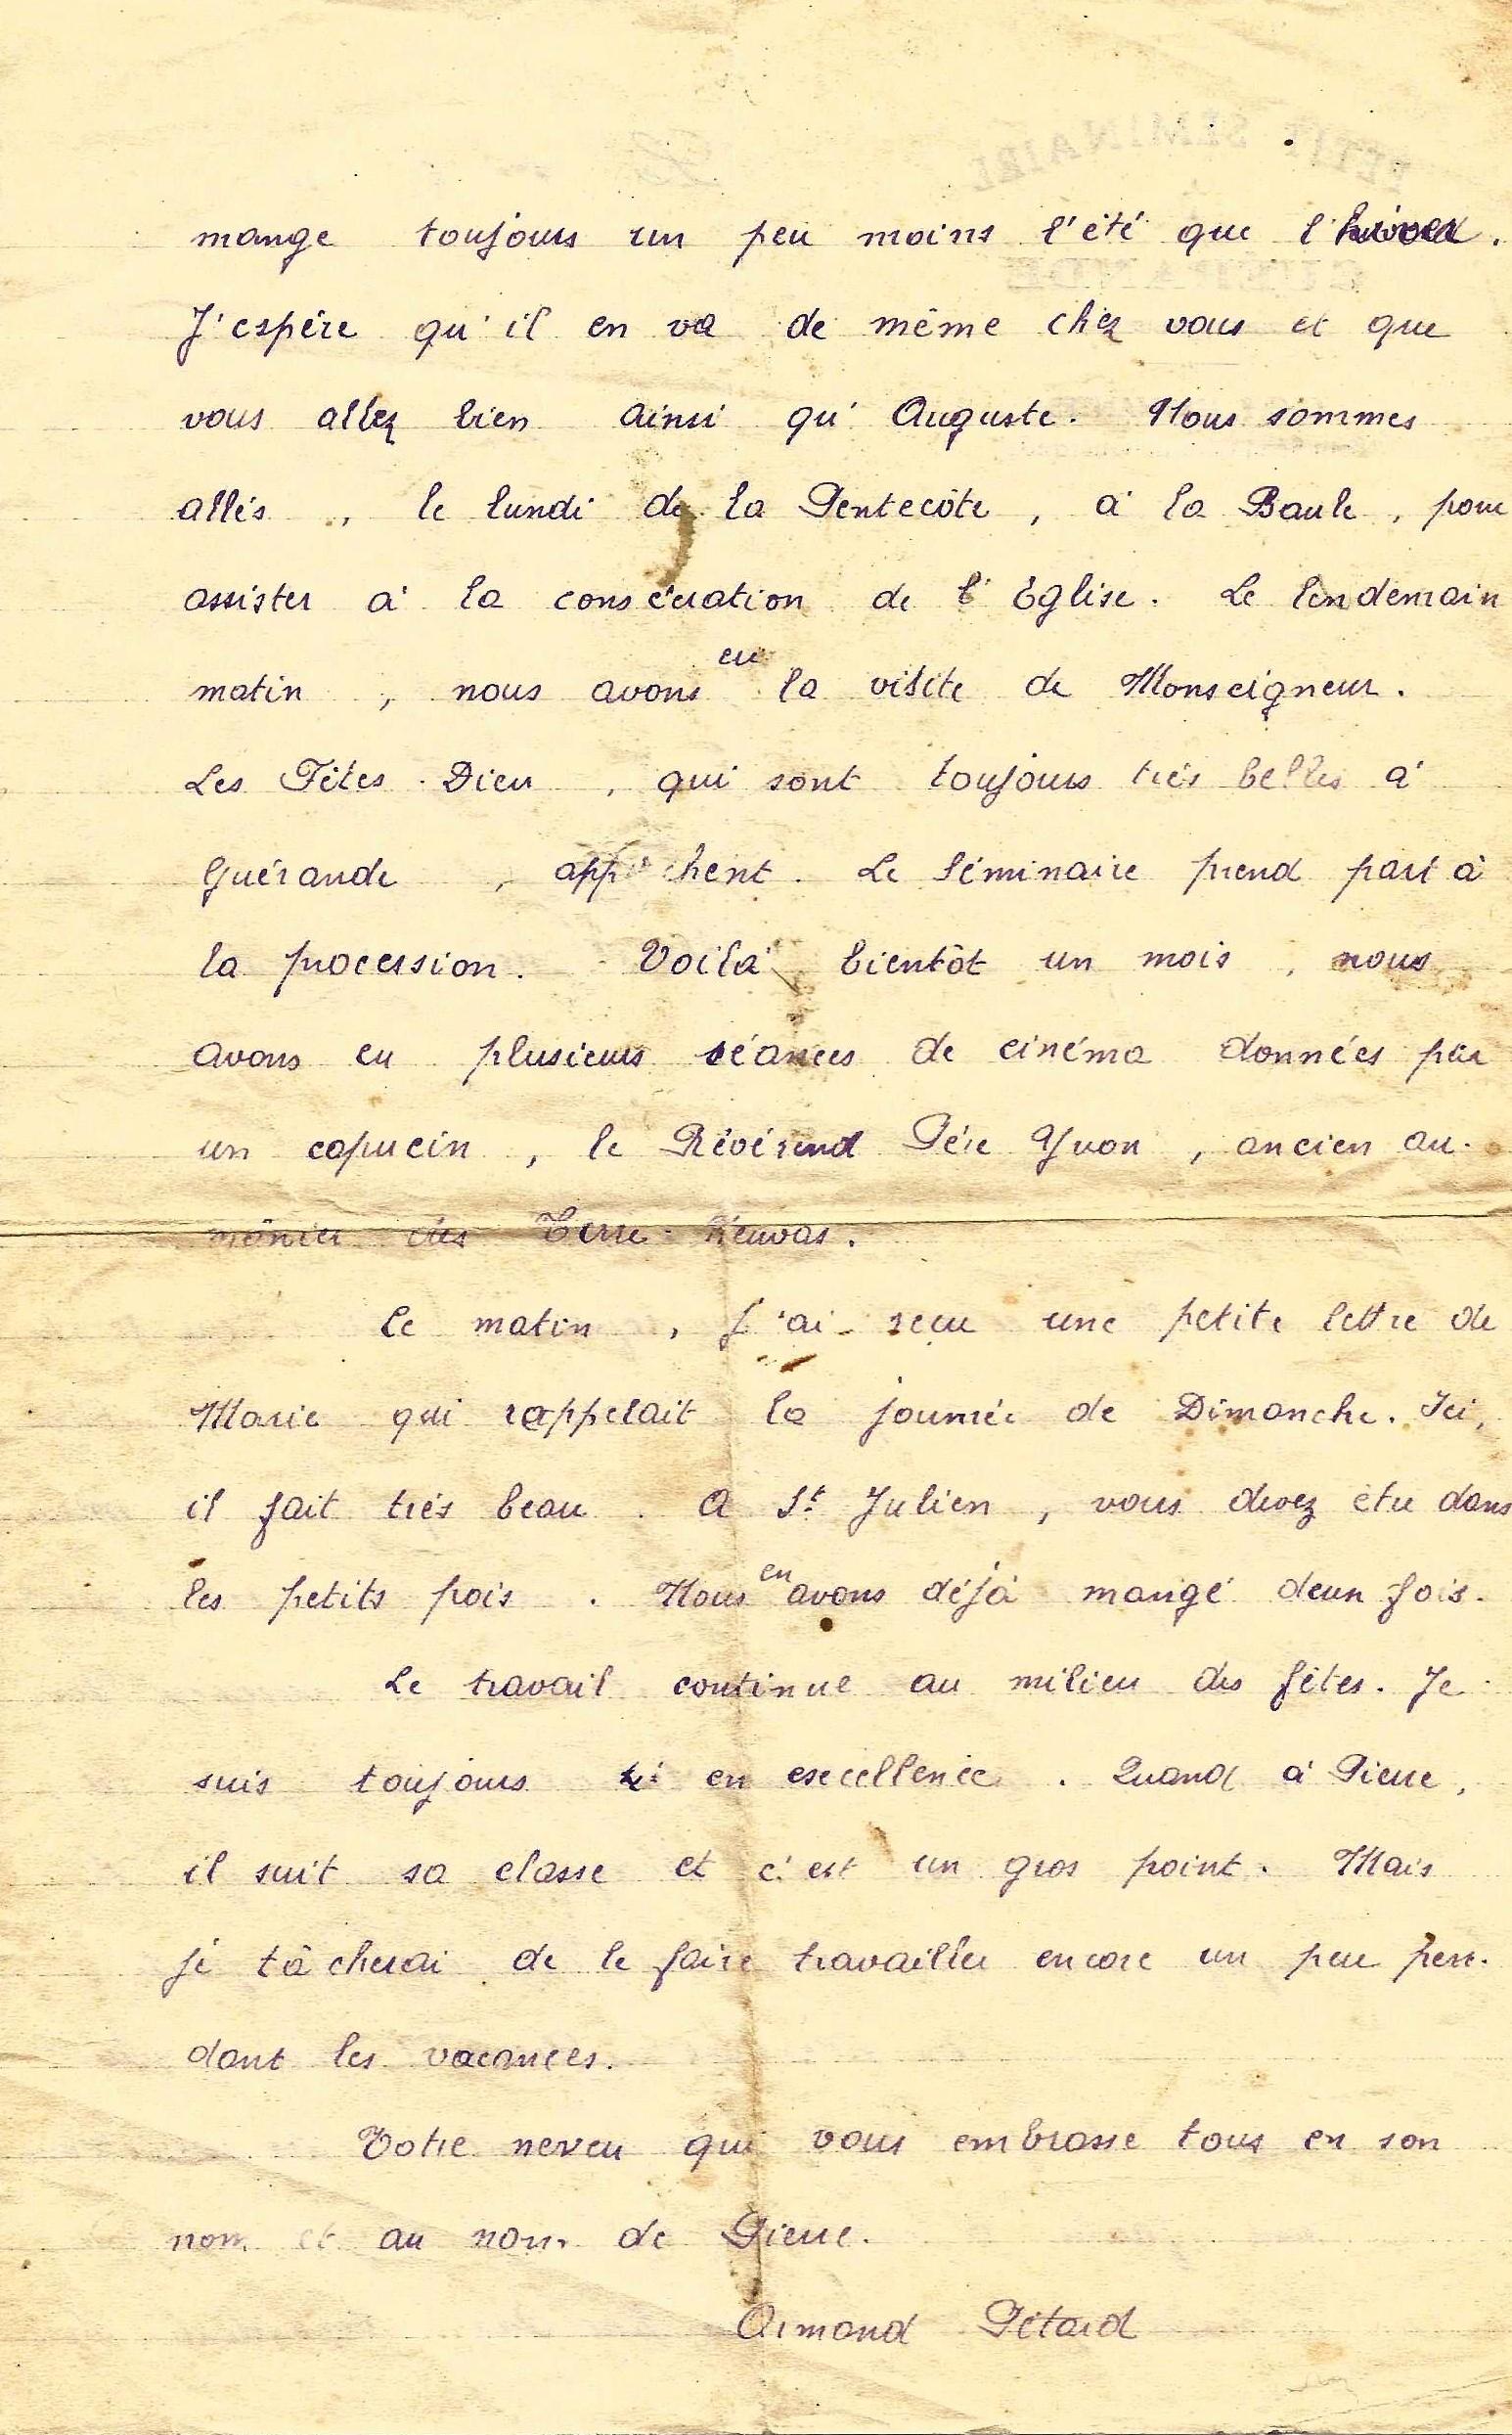 mange toujours un peu moins l'été que l'hiver.
J'espère qu'il en va de même chez vous et que
vous allez bien ainsi qu'Auguste. Nous sommes
allés, le lundi de la Pentecôte, à la Baule, pour
assister à la consécration de l'Eglise. Le lendemain
matin, nous avons eu la visite de Monseigneur.
Les Fêtes-Dieu, qui sont toujours très belles à
Guérande, approchent. Le Séminaire prend part à
la procession. Voilà bientôt un mois, nous
avons eu plusieurs séances de cinéma données par
un capucin, le Révérend Père Yvon, ancien au-
mônier des Terre-Neuvas.
Ce matin, j'ai reçu une petite lettre de
Marie qui rappelait la journée de Dimanche. Ici,
il fait très beau. A St Julien, vous devez être dans
les petits pois. Nous en avons déjà mangé deux fois.
Le travail continue au milieu des fêtes. Je
suis toujours en excellence. Quand à Pierre,
il suit sa classe et c'est un gros point. Mais
je tâcherai de le faire travailler encore un peu pen-
dant les vacances.
Votre neveu qui vous embrasse tous en son
nom et au nom de Pierre.
Armand Pétard
PETIT SEMINAIRE
GUERANDE